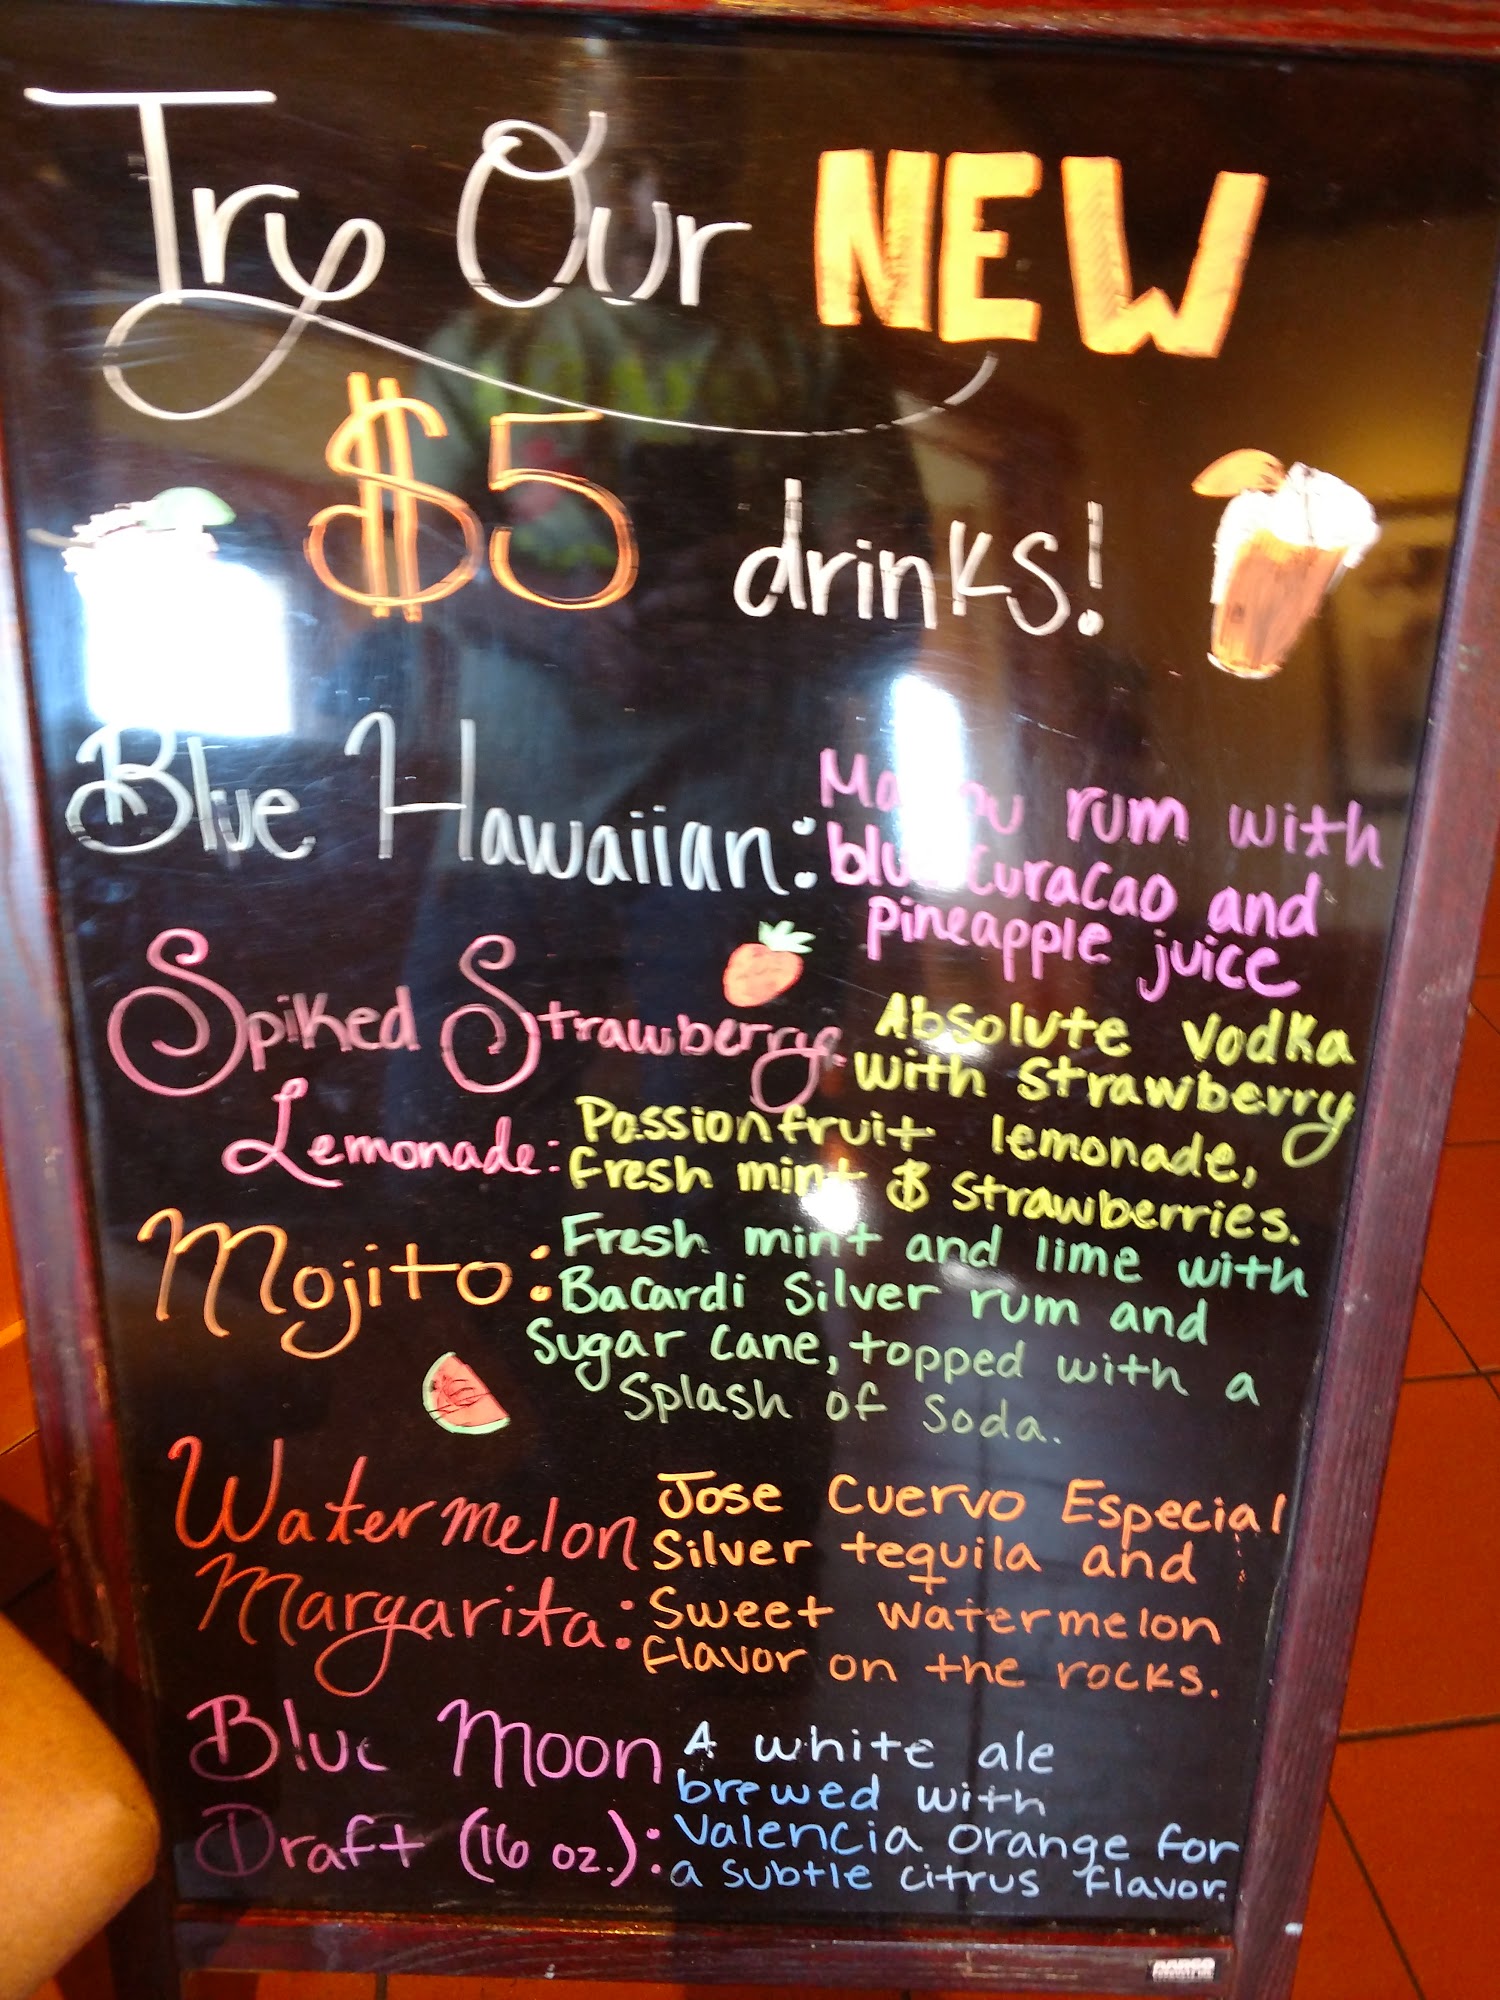 Try Our NEW
$5 drinks!
Blue Hawaiian: rum with
curacao and
pineapple juice
Spiked Strawberry Absolute Vodka
with Strawberry
Lemonade: Passionfruit lemonade,
fresh mint & Strawberries.
Mojito: Fresh mint and lime with
Bacardi Silver rum and
Sugar Cane, topped with a
Splash of Soda.
Watermelon Jose Cuervo Especial
Silver tequila and
Margarita: Sweet watermelon
flavor on the rocks.
Blue Moon A white ale
brewed with
Draft (16 oz.): Valencia orange for
a subtle citrus flavor.